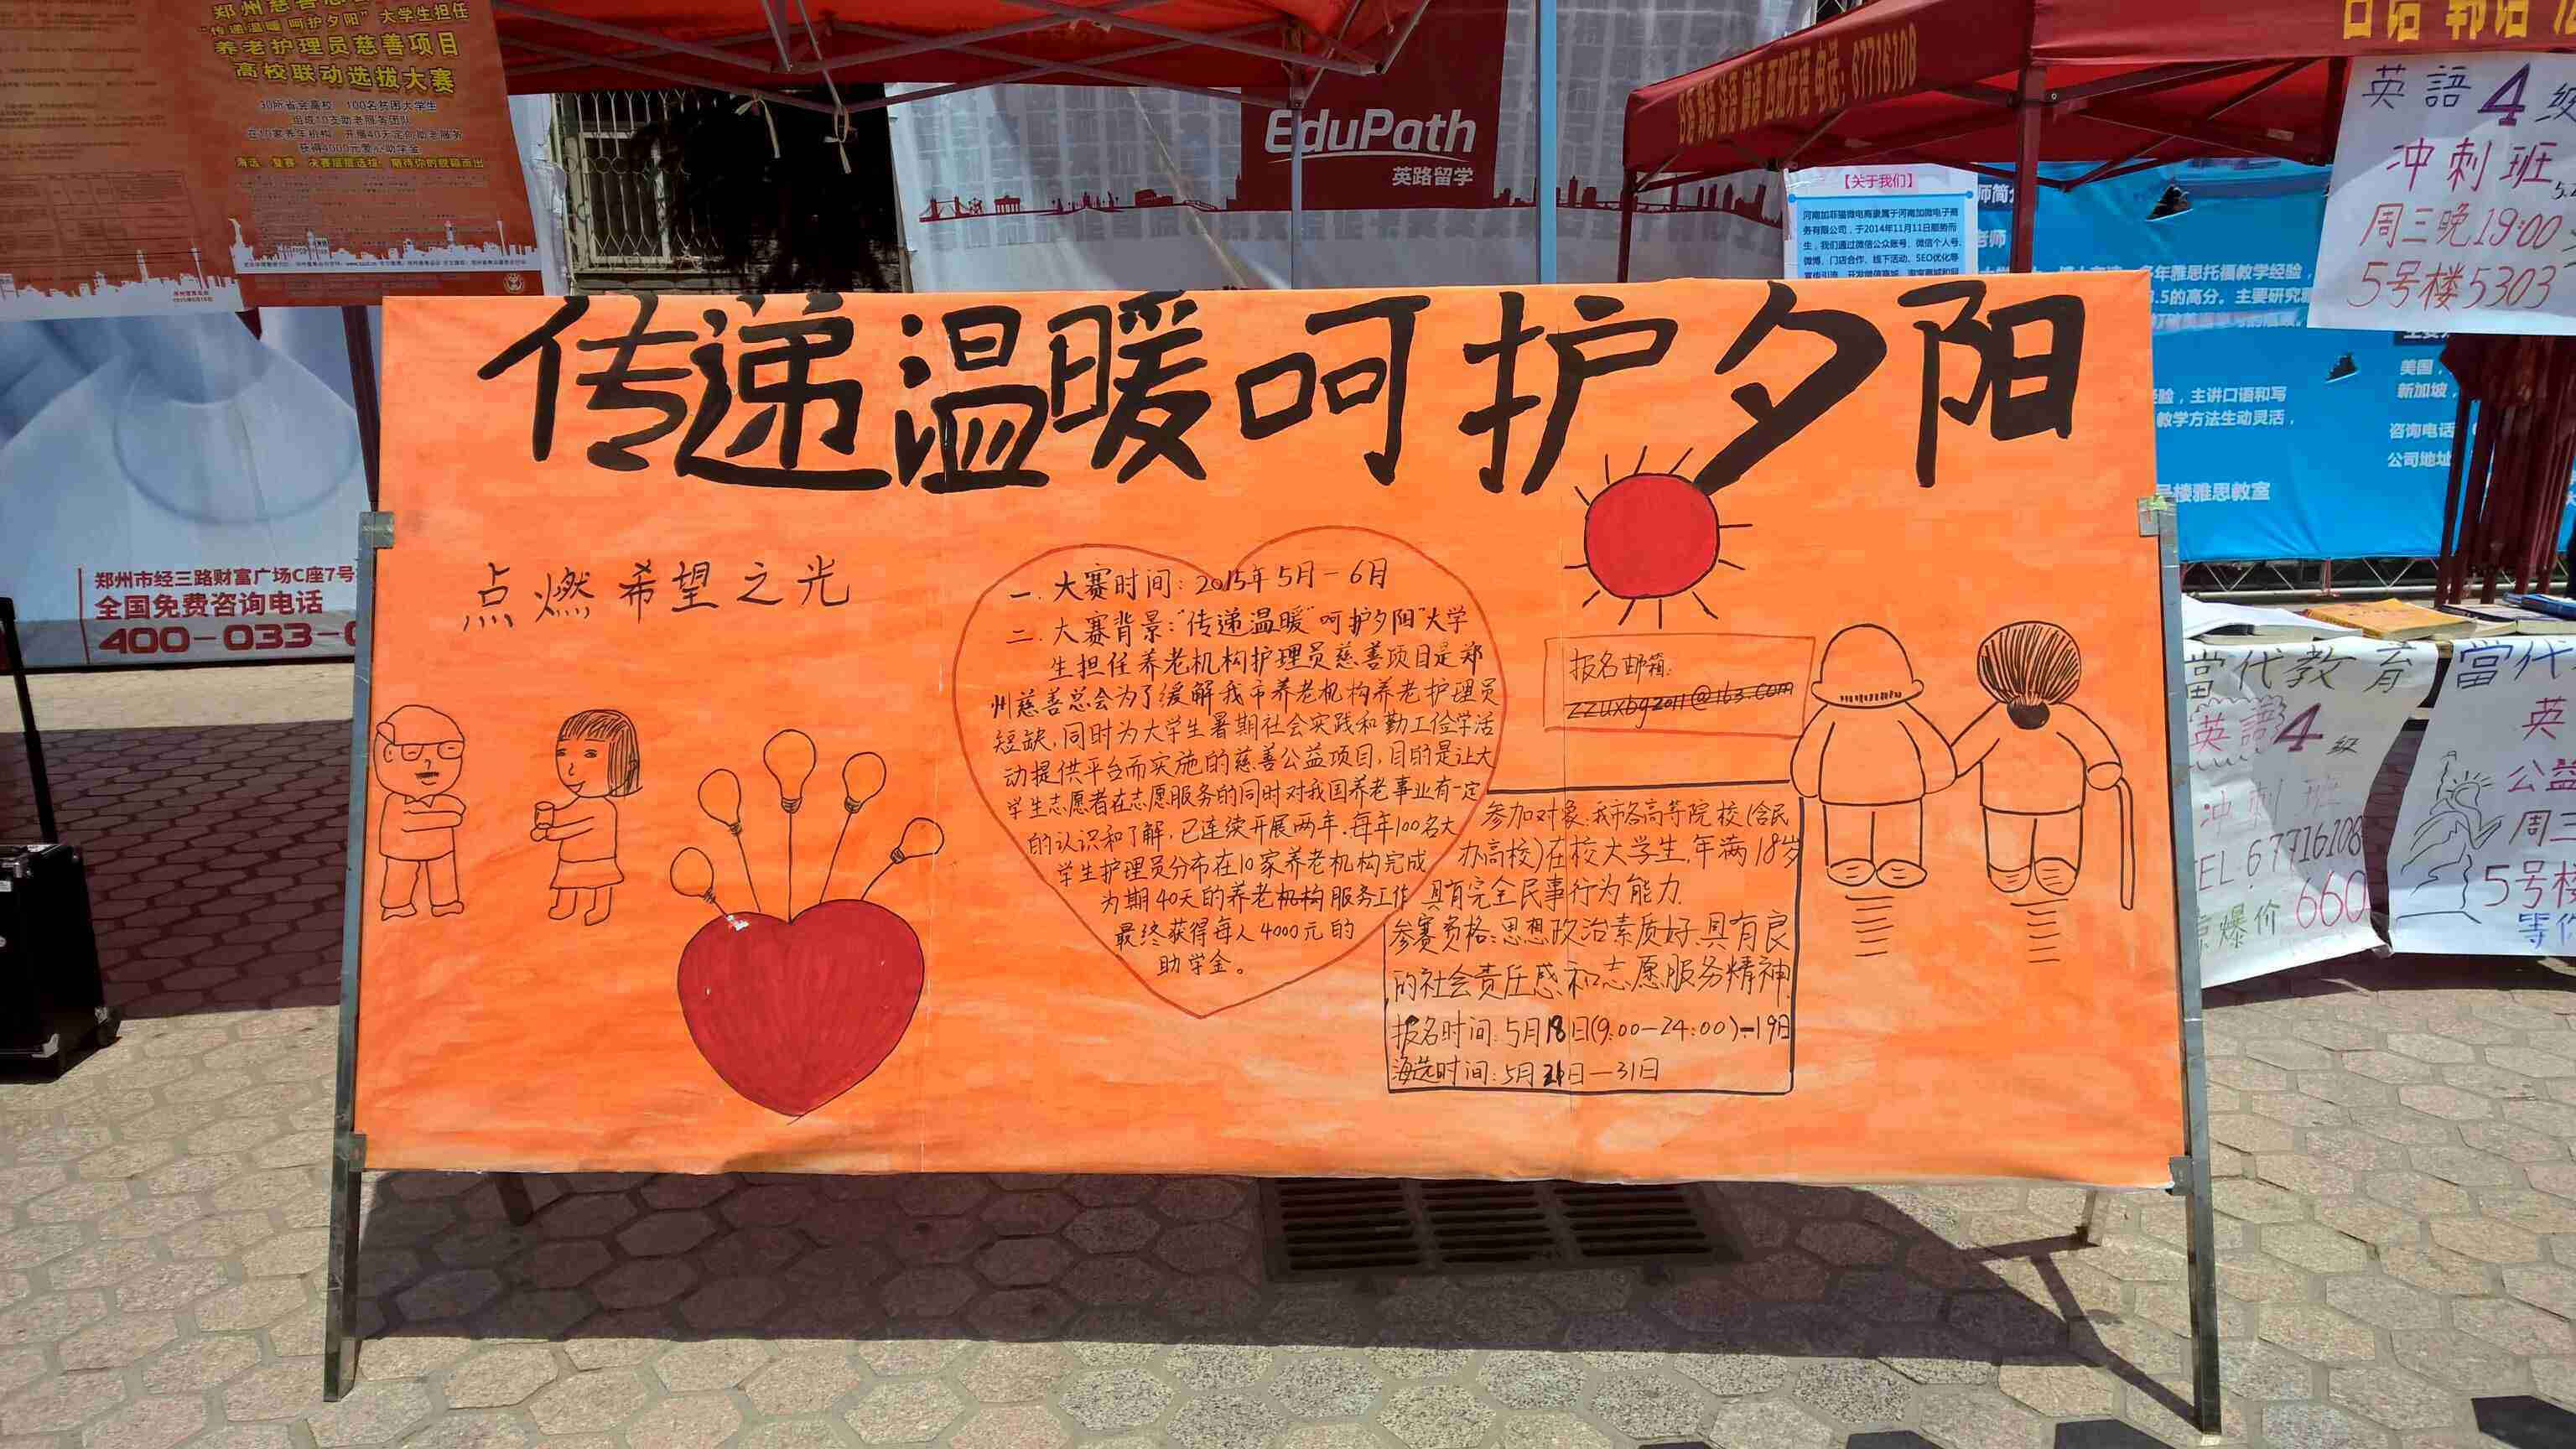 "传递温暖 呵护夕阳"大学生担任
养老护理员慈善项目
高校联动选拔大赛
30所省会高校 100名贫困大学生
组成10支助老服务团队
在10家养老机构 开展40天定向助老服务
获得4000元爱心助学金
EduPath
英路留学
电话: 67716108
日语 韩语
英語4级
冲刺班
周三晚19:00
5号楼5303
【关于我们】
河南加菲猫微电商隶属于河南加微电子商
务有限公司，于2014年11月11日顺势而
生，我们通过微信公众账号、微信个人号、
微博、门店合作、线下活动、SEO优化等
年雅思托福教学经验，
.5的高分。主要研究
验，主讲口语和写
教学方法生动灵活，
美国，
新加坡，
咨询电话
公司地址
楼雅思教室
传递温暖呵护夕阳
点燃希望之光
一. 大赛时间: 2015年5月-6月
二. 大赛背景:"传递温暖"呵护夕阳"大学
生担任养老机构护理员慈善项目是郑
州慈善总会为了缓解我市养老机构养老护理员
短缺,同时为大学生暑期社会实践和勤工俭学活
动提供平台而实施的慈善公益项目,目的是让大
学生志愿者在志愿服务的同时对我国养老事业有一定
的认识和了解,已连续开展两年.每年100名大
学生护理员分布在10家养老机构完成
为期40天的养老机构服务工作
最终获得每人4000元的
助学金。
报名邮箱:
zzuxbgz011@163.com
参加对象:我市各高等院校(含民
办高校)在校大学生,年满18岁
具有完全民事行为能力.
参赛资格:思想政治素质好,具有良
的社会责任感和志愿服务精神.
报名时间:5月18日(9:00-24:00)-19日
海选时间:5月21日—31日
郑州市经三路财富广场C座7号
全国免费咨询电话
400-033-
當代教育
英語4级
冲刺班
TEL 67716108
爆价 660
當代
英
公益
周三
5号楼